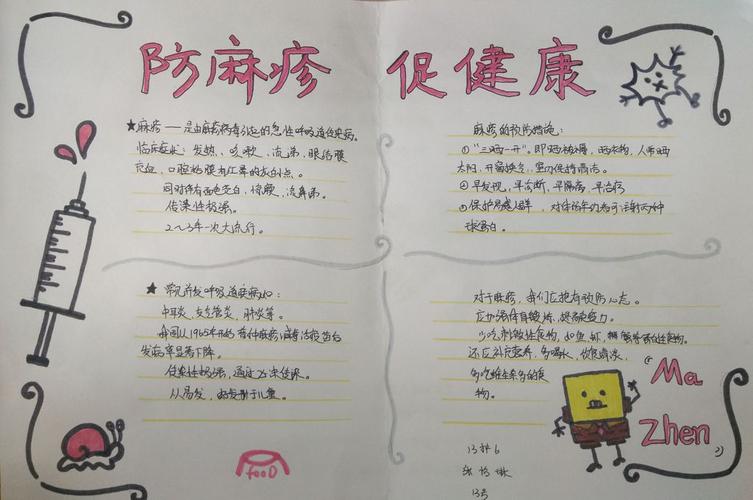 防麻疹 促健康
★麻疹——是由麻疹病毒引起的急性呼吸道传染病。
临床症状：发热、咳嗽、流涕，眼结膜
充血，口腔粘膜有红晕的灰白点。
同时伴有面色苍白，惊厥，流鼻涕。
传染性极强。
2~3年一次大流行。
★常见并发呼吸道疾病如：
中耳炎，支气管炎，肺炎等。
我国从1965年开始
发病率显著下降。
传染性极强，通过
人易发，好发于儿童。
FOOD
麻疹的预防措施：
①"三晒一开"。即晒被褥，晒衣物，人常晒
太阳，开窗换气，室内保持清洁。
②早发现，早诊断，早隔离，早治疗
③保护易感人群，对体弱年幼者可注射丙种
球蛋白。
对于麻疹，我们应抱有预防心态。
应加强体育锻炼，提高免疫力。
少吃刺激性食物，如鱼、虾、蟹等
还应补充营养，多喝水，饮食清淡，
多吃维生素多的食
物。
"Ma
Zhen"
13号